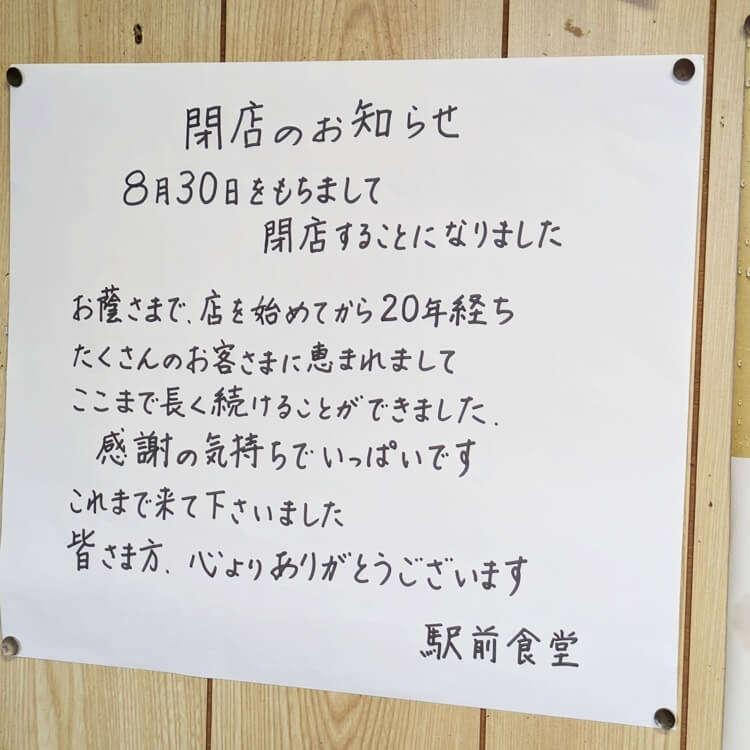 閉店のお知らせ
8月30日をもちまして
閉店することになりました
お蔭さまで、店を始めてから20年経ち
たくさんのお客さまに恵まれまして
ここまで長く続けることができました、
感謝の気持ちでいっぱいです
これまで来て下さいました
皆さま方、心よりありがとうございます
駅前食堂